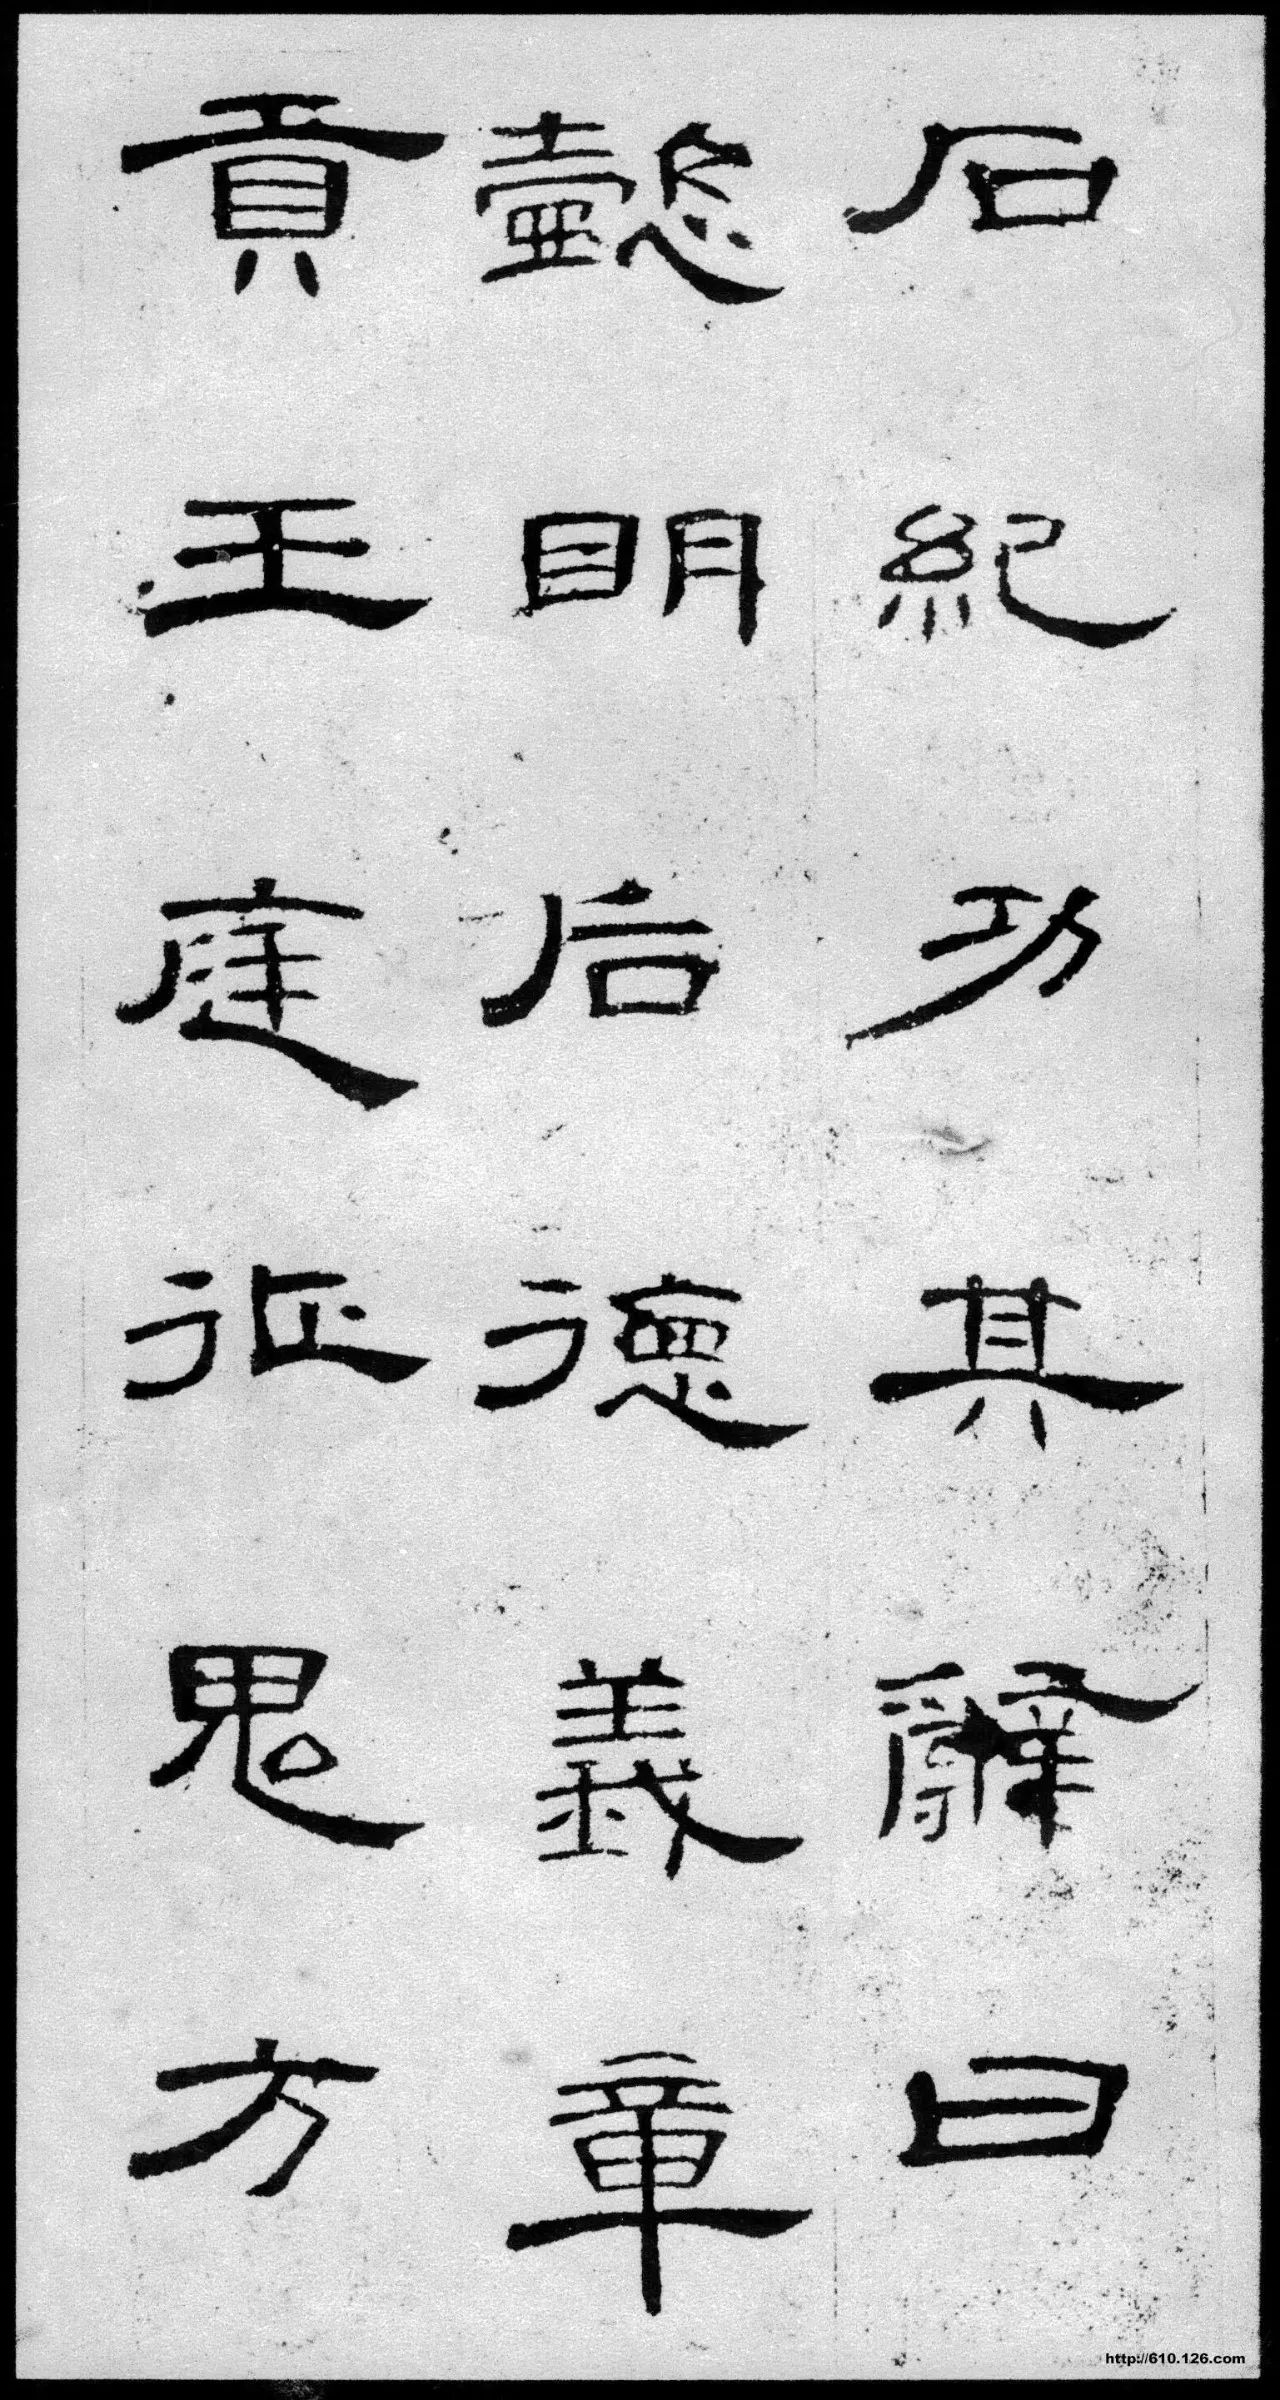 石紀功其辭曰
懿明后德義章
貢王庭征鬼方
http://610.126.com